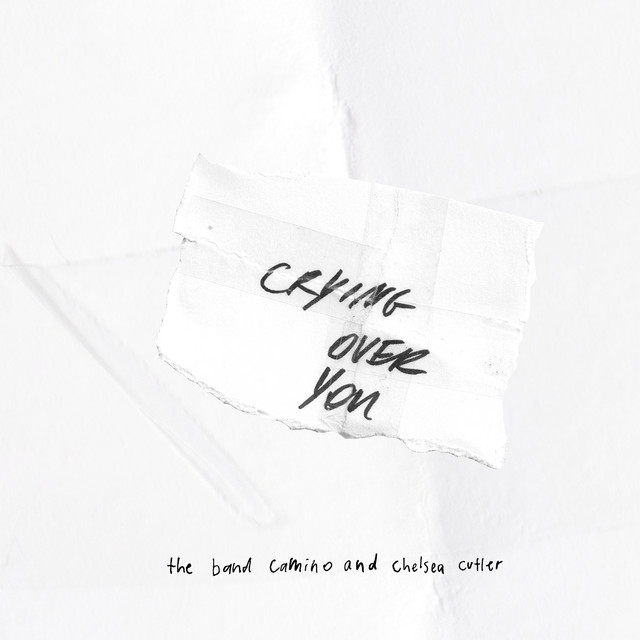 CRYING
OVER
YOU
the band Camino and chelsea cutler